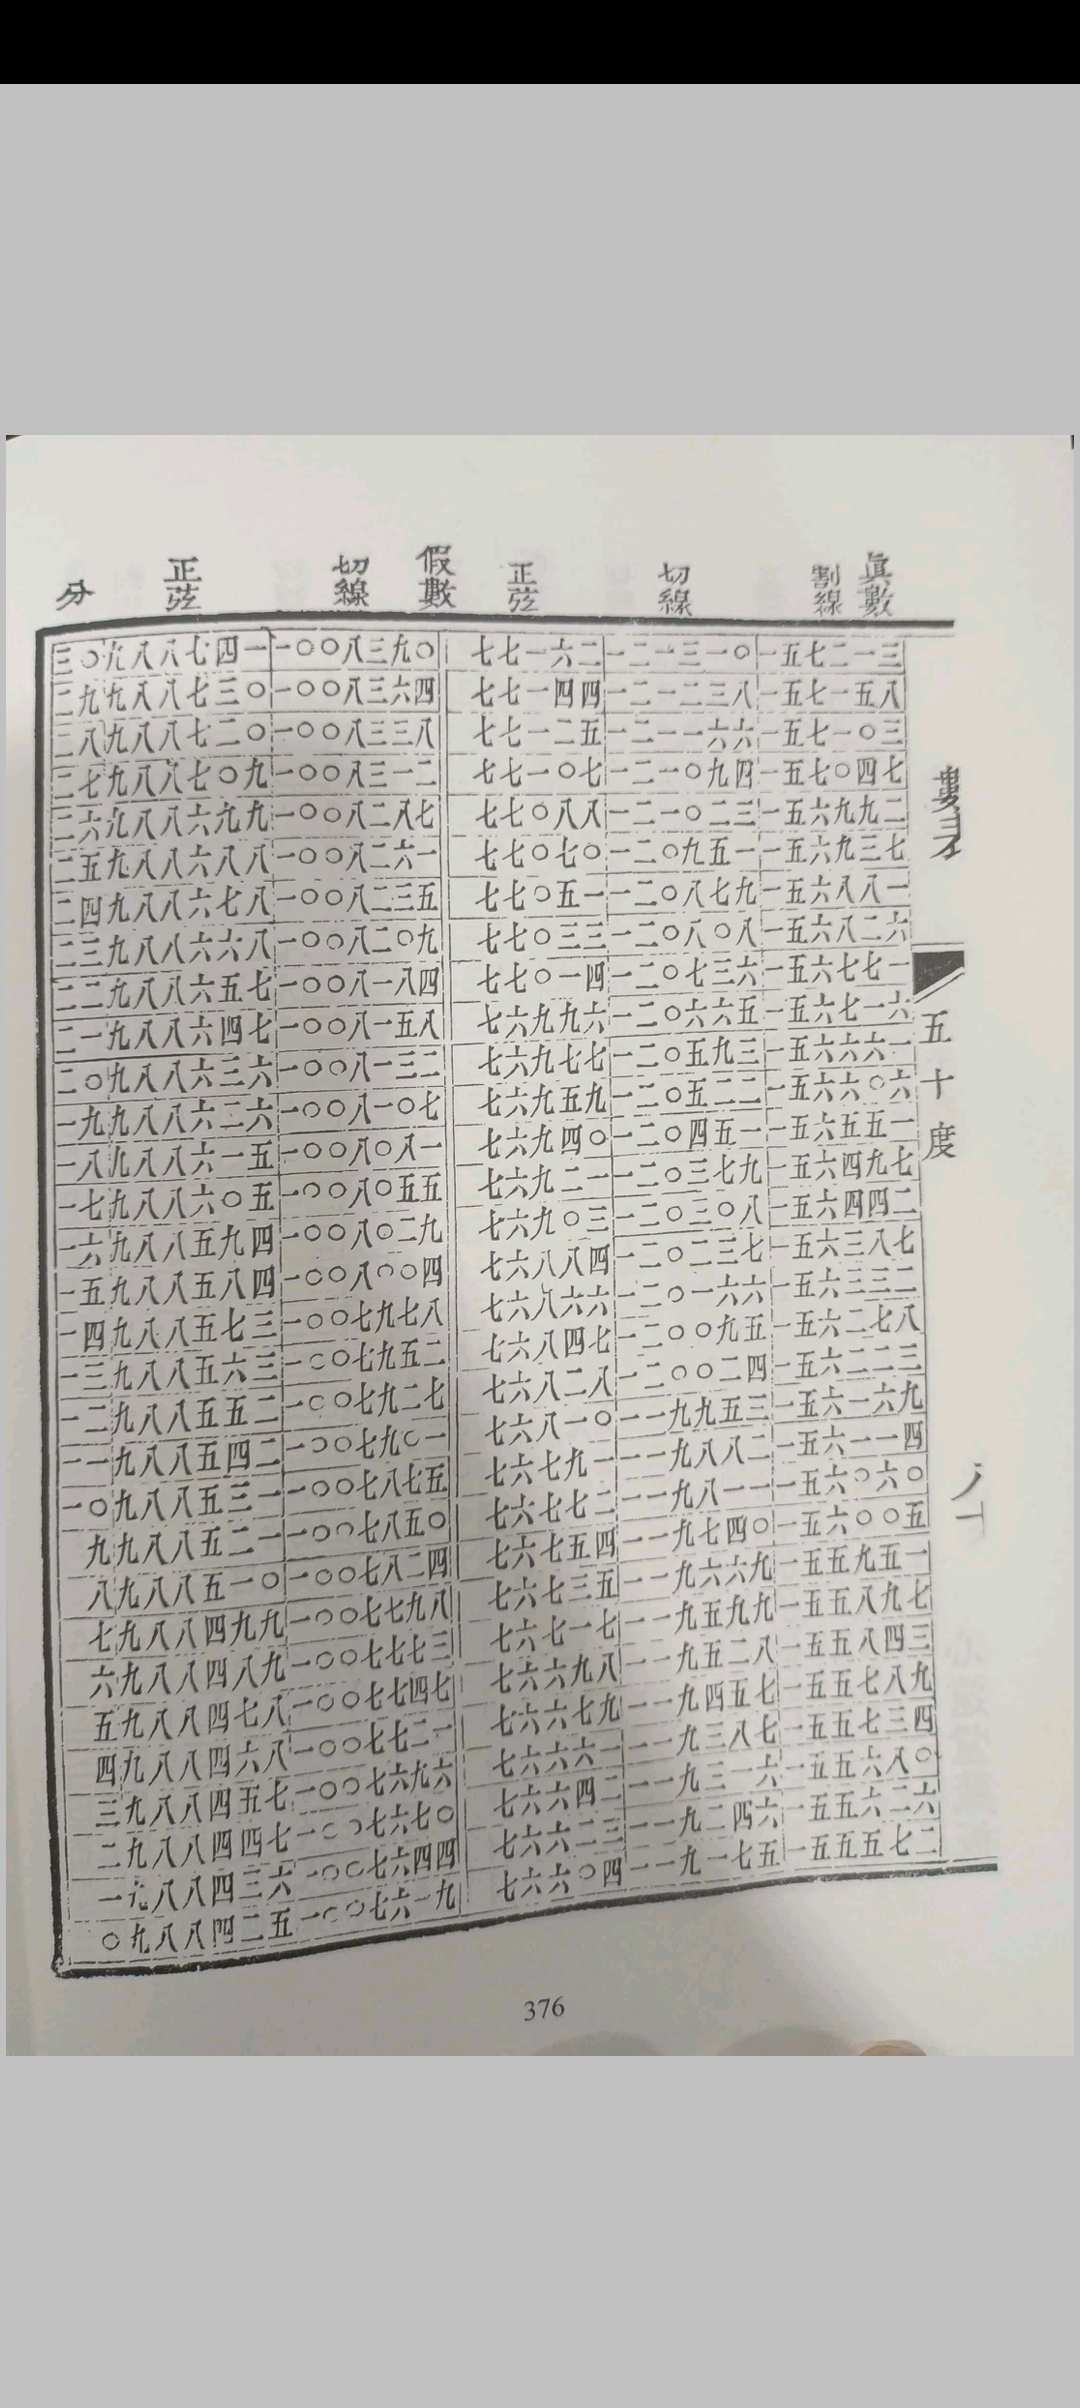 分 正弦 切線 假數 正弦 切線 割線 眞數
三〇 九八八七四一 一〇〇八三九〇 七七一六二 一二一三一〇 一五七二一三
二九 九八八七三〇 一〇〇八三六四 七七一四四 一二一二三八 一五七一五八
二八 九八八七二〇 一〇〇八三三八 七七一二五 一二一一六六 一五七一〇三
二七 九八八七〇九 一〇〇八三一二 七七一〇七 一二一〇九四 一五七〇四七
二六 九八八六九九 一〇〇八二八七 七七〇八八 一二一〇二三 一五六九九二
二五 九八八六八八 一〇〇八二六一 七七〇七〇 一二〇九五一 一五六九三七
二四 九八八六七八 一〇〇八二三五 七七〇五一 一二〇八七九 一五六八八一
二三 九八八六六八 一〇〇八二〇九 七七〇三三 一二〇八〇八 一五六八二六
二二 九八八六五七 一〇〇八一八四 七七〇一四 一二〇七三六 一五六七七一
二一 九八八六四七 一〇〇八一五八 七六九九六 一二〇六六五 一五六七一六
二〇 九八八六三六 一〇〇八一三二 七六九七七 一二〇五九三 一五六六六一
一九 九八八六二六 一〇〇八一〇七 七六九五九 一二〇五二二 一五六六〇六
一八 九八八六一五 一〇〇八〇八一 七六九四〇 一二〇四五一 一五六五五一
一七 九八八六〇五 一〇〇八〇五五 七六九二一 一二〇三七九 一五六四九七
一六 九八八五九四 一〇〇八〇二九 七六九〇三 一二〇三〇八 一五六四四二
一五 九八八五八四 一〇〇八〇〇四 七六八八四 一二〇二三七 一五六三八七
一四 九八八五七三 一〇〇七九七八 七六八六六 一二〇一六六 一五六三三二
一三 九八八五六三 一〇〇七九五二 七六八四七 一二〇〇九五 一五六二七八
一二 九八八五五二 一〇〇七九二七 七六八二八 一二〇〇二四 一五六二二三
一一 九八八五四二 一〇〇七九〇一 七六八一〇 一一九九五三 一五六一六九
一〇 九八八五三一 一〇〇七八七五 七六七九一 一一九八八二 一五六一一四
九 九八八五二一 一〇〇七八五〇 七六七七二 一一九八一一 一五六〇六〇
八 九八八五一〇 一〇〇七八二四 七六七五四 一一九七四〇 一五六〇〇五
七 九八八四九九 一〇〇七七九八 七六七三五 一一九六六九 一五五九五一
六 九八八四八九 一〇〇七七七三 七六七一七 一一九五九九 一五五八九七
五 九八八四七八 一〇〇七七四七 七六六九八 一一九五二八 一五五八四三
四 九八八四六八 一〇〇七七二一 七六六七九 一一九四五七 一五五七八九
三 九八八四五七 一〇〇七六九六 七六六六一 一一九三八七 一五五七三四
二 九八八四四七 一〇〇七六七〇 七六六四二 一一九三一六 一五五六八〇
一 九八八四三六 一〇〇七六四四 七六六二三 一一九二四六 一五五六二六
〇 九八八四二五 一〇〇七六一九 七六六〇四 一一九一七五 一五五五七二
五十度
376